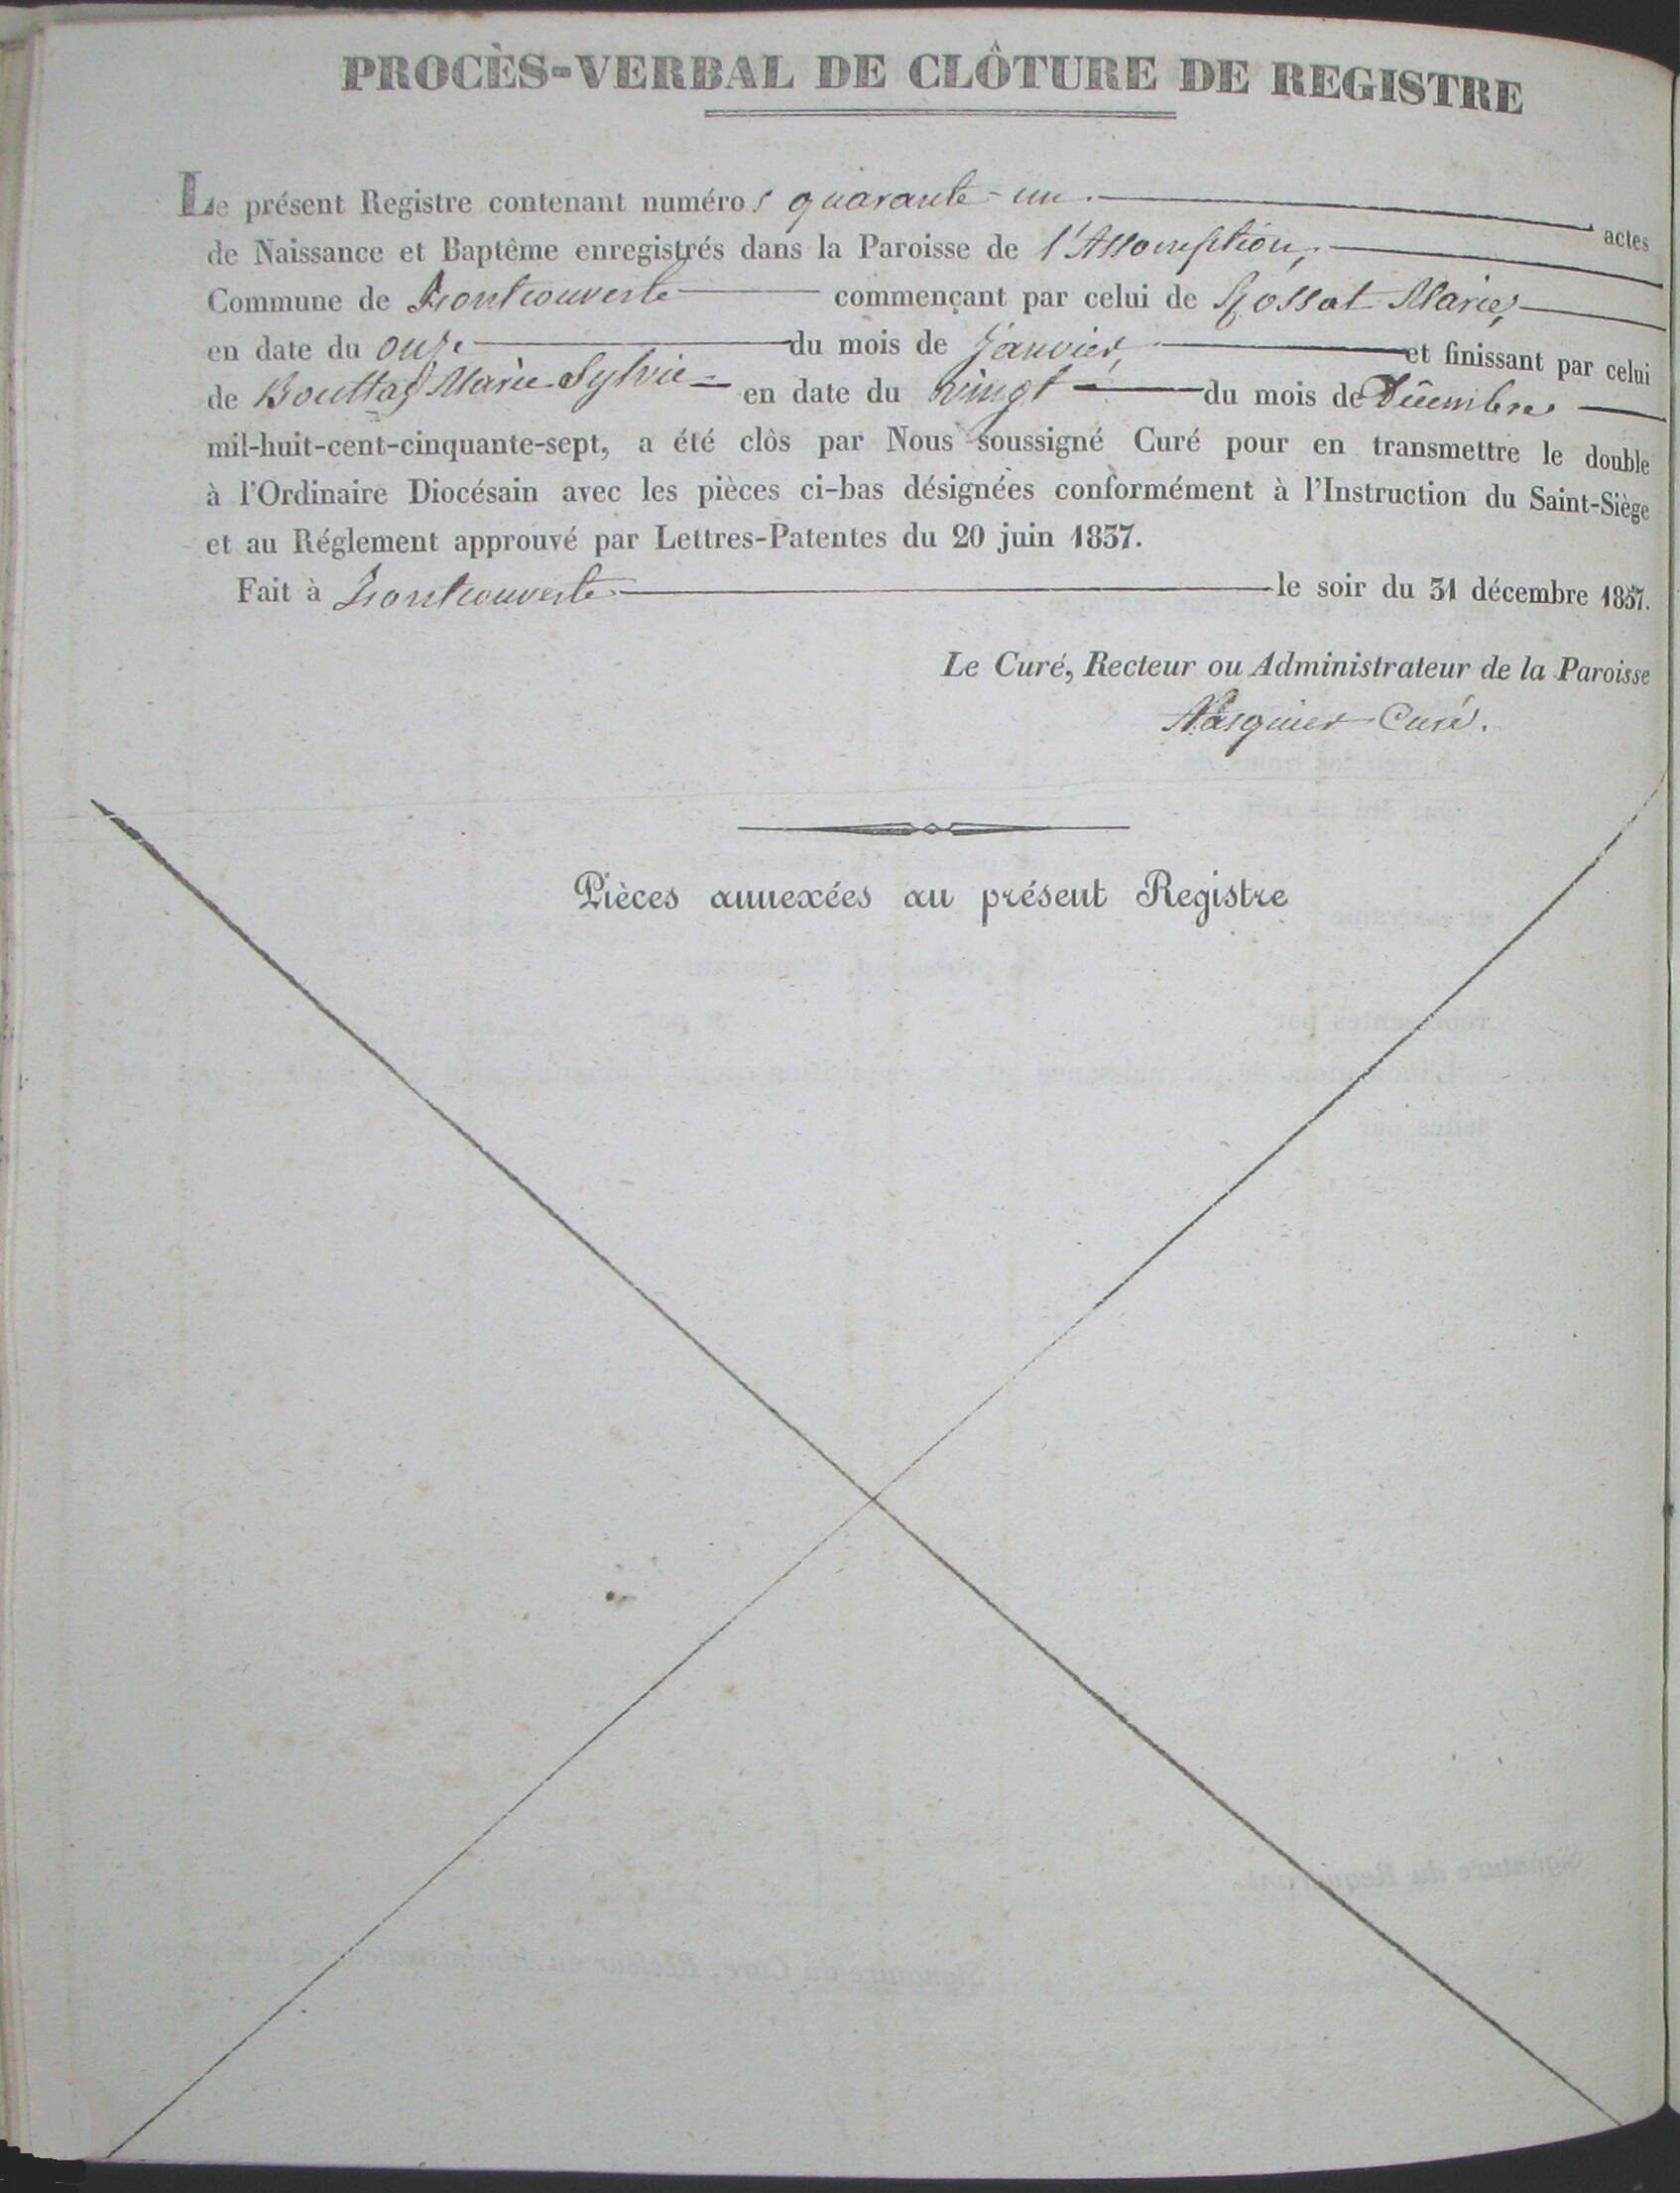 PROCÈS-VERBAL DE CLÔTURE DE REGISTRE
Le présent Registre contenant numéros quarante-un. actes
de Naissance et Baptême enregistrés dans la Paroisse de l'Assomption,
Commune de Montcouverte commençant par celui de Gossat Marie,
en date du onze du mois de Janvier, et finissant par celui
de Bouttaz Marie Sylvie en date du vingt du mois de Décembre
mil-huit-cent-cinquante-sept, a été clôs par Nous soussigné Curé pour en transmettre le double
à l'Ordinaire Diocésain avec les pièces ci-bas désignées conformément à l'Instruction du Saint-Siège
et au Réglement approuvé par Lettres-Patentes du 20 juin 1837.
Fait à Montcouverte le soir du 31 décembre 1857.
Le Curé, Recteur ou Administrateur de la Paroisse
Pasquier Curé.
Pièces annexées au présent Registre